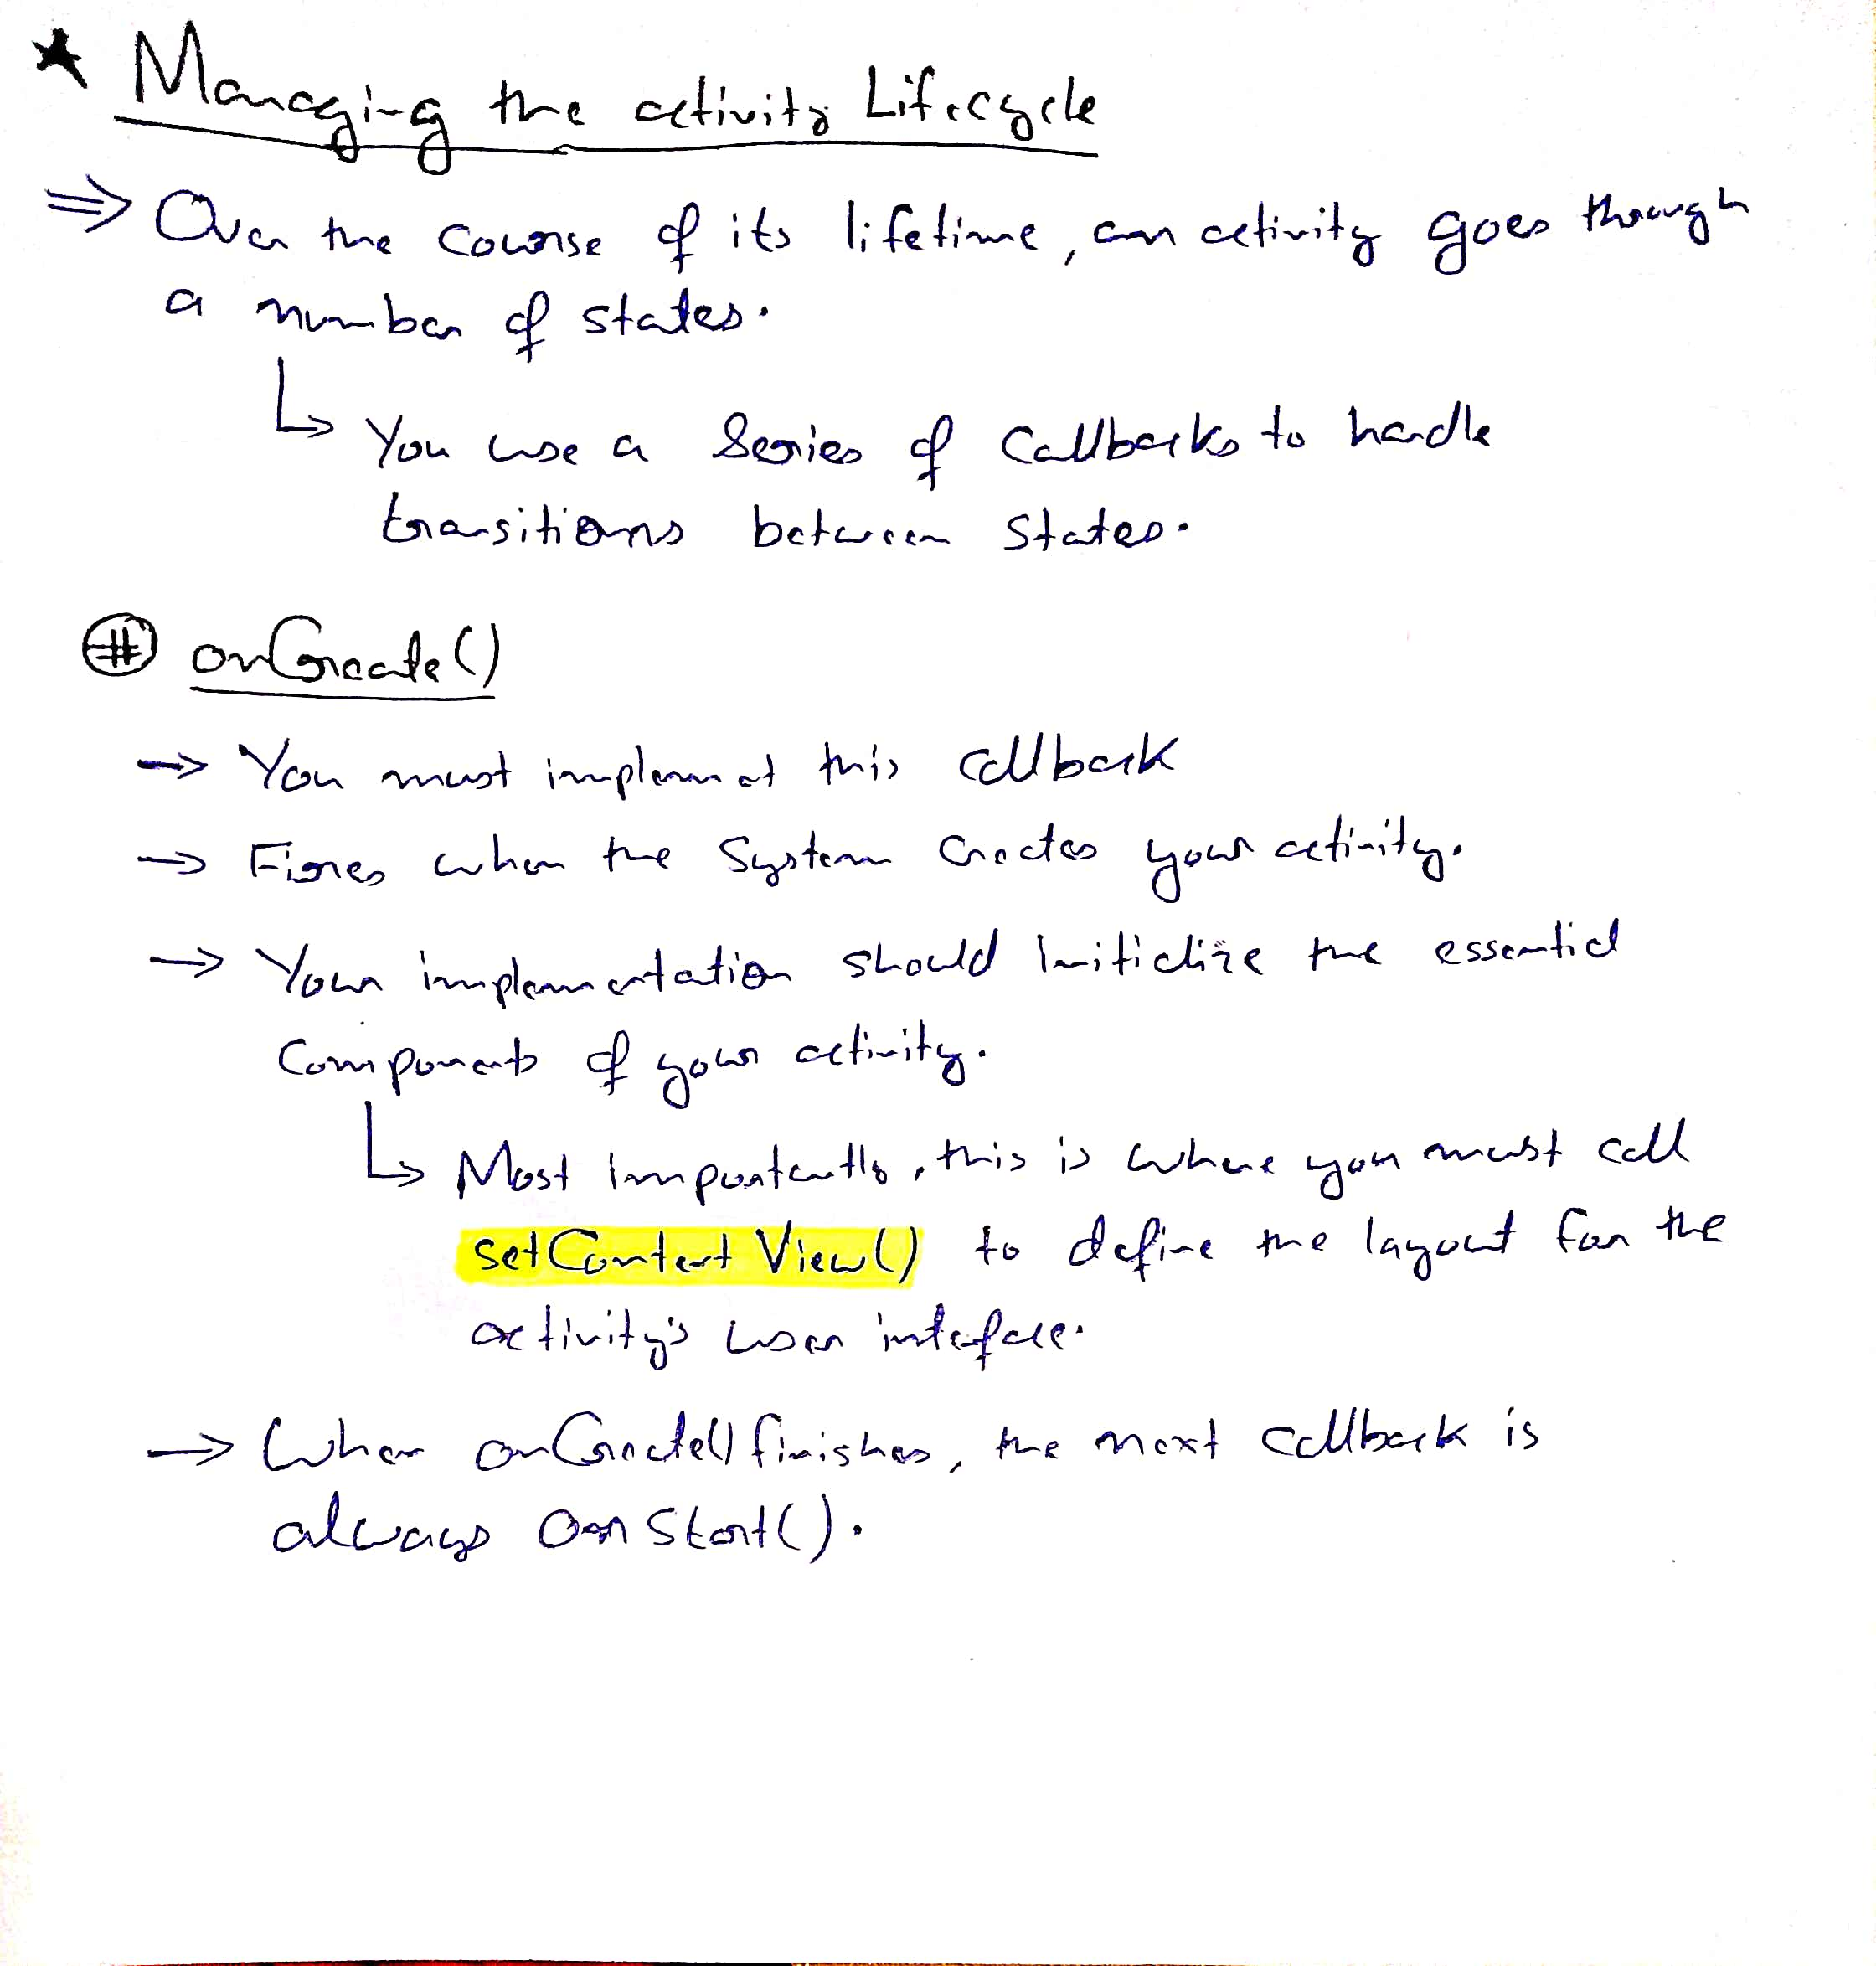 * Managing the activity Lifecycle
⇒ Over the course of its lifetime, an activity goes through
a number of states.
↳ You use a Series of Callbacks to handle
transitions between states.
# onCreate()
→ You must implement this callback
→ Fires when the System creates your activity.
→ Your implementation should initialize the essential
Components of your activity.
↳ Most importantly, this is where you must call
setContentView() to define the layout for the
activity's user inteface.
→ When onCreate() finishes, the next callback is
always onStart().